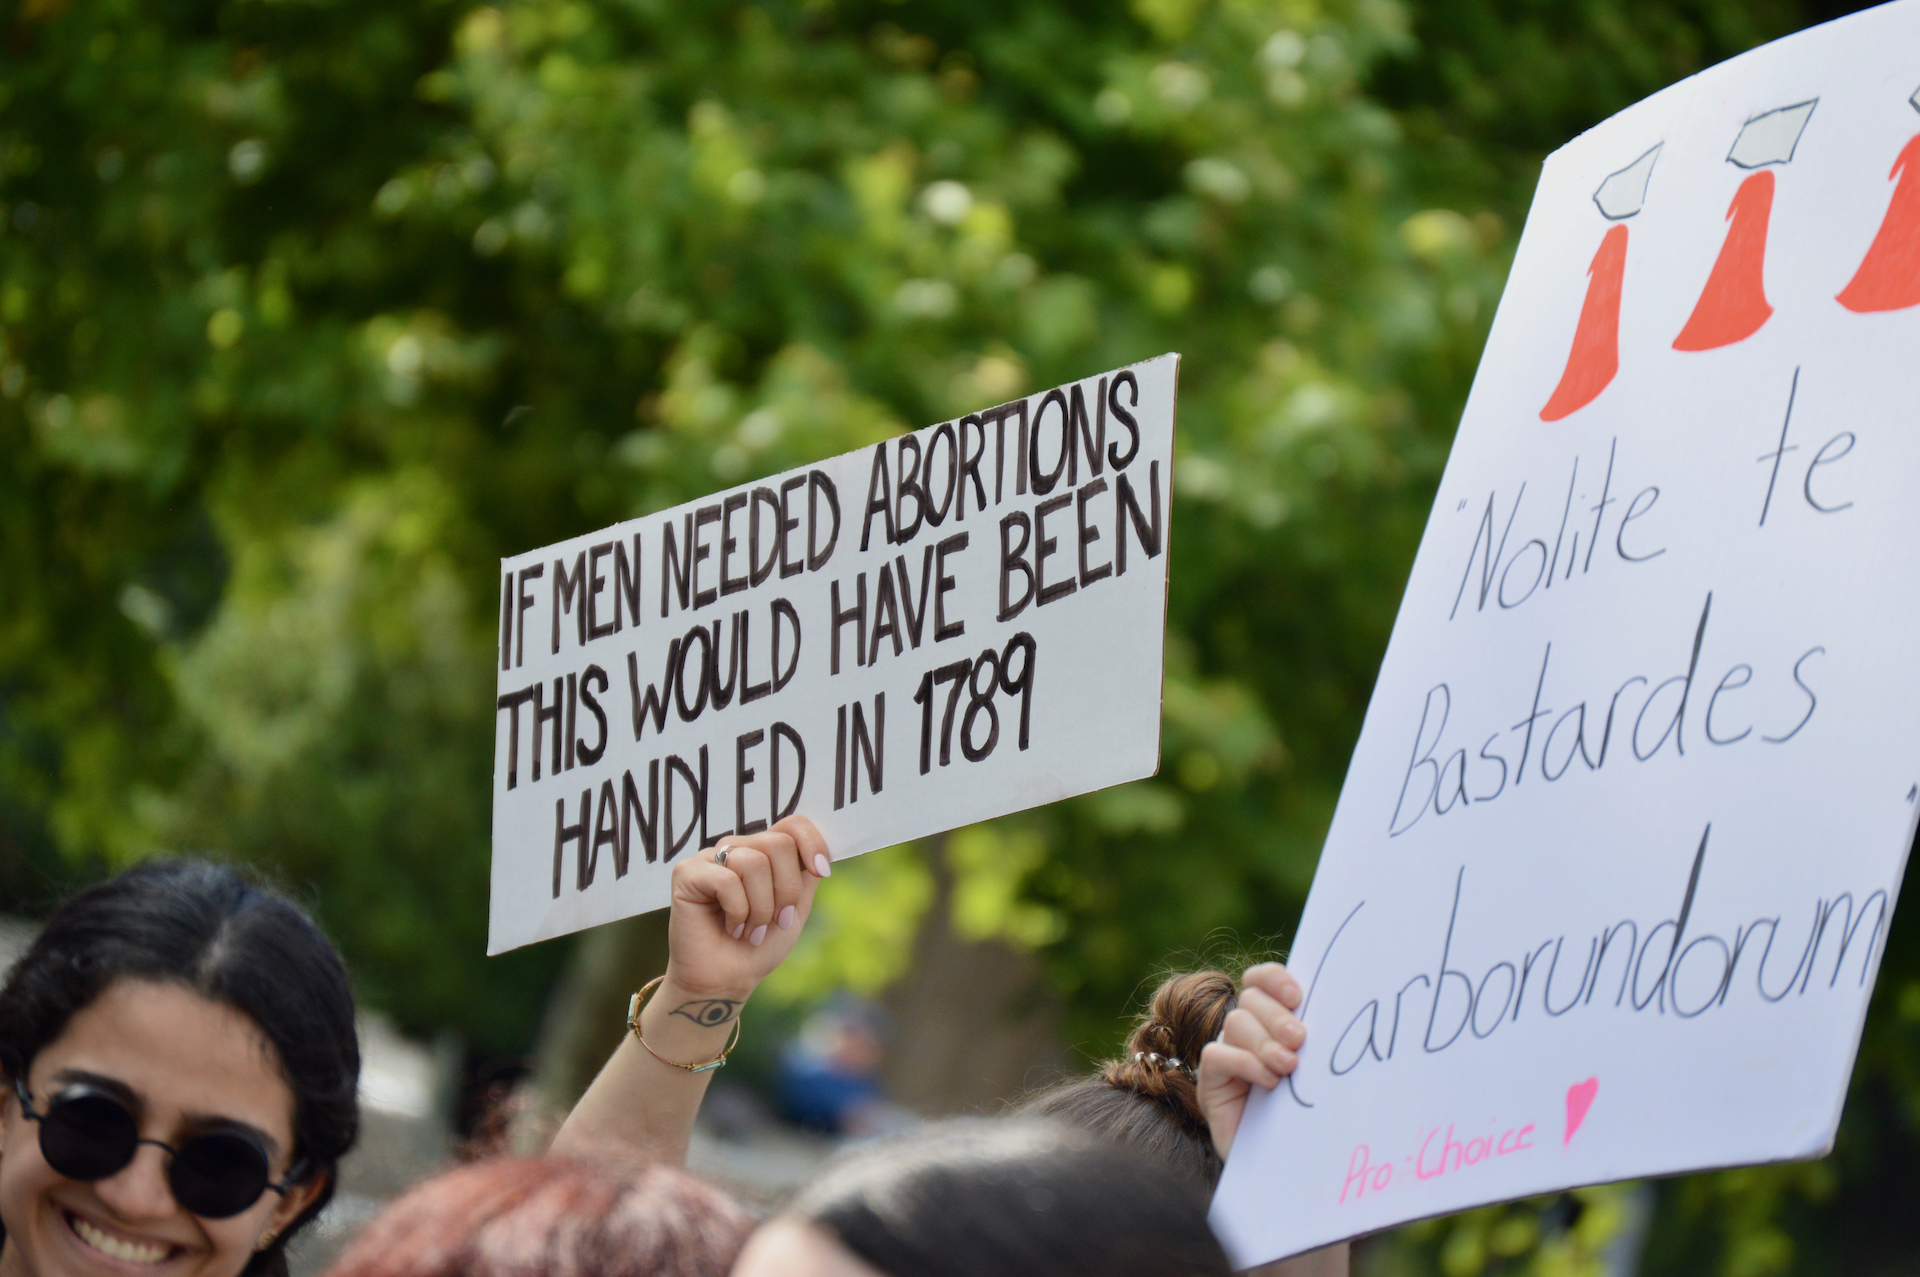 IF MEN NEEDED ABORTIONS,
THIS WOULD HAVE BEEN
HANDLED IN 1789
"Nolite te
Bastardes
Carborundorum"
Pro-Choice